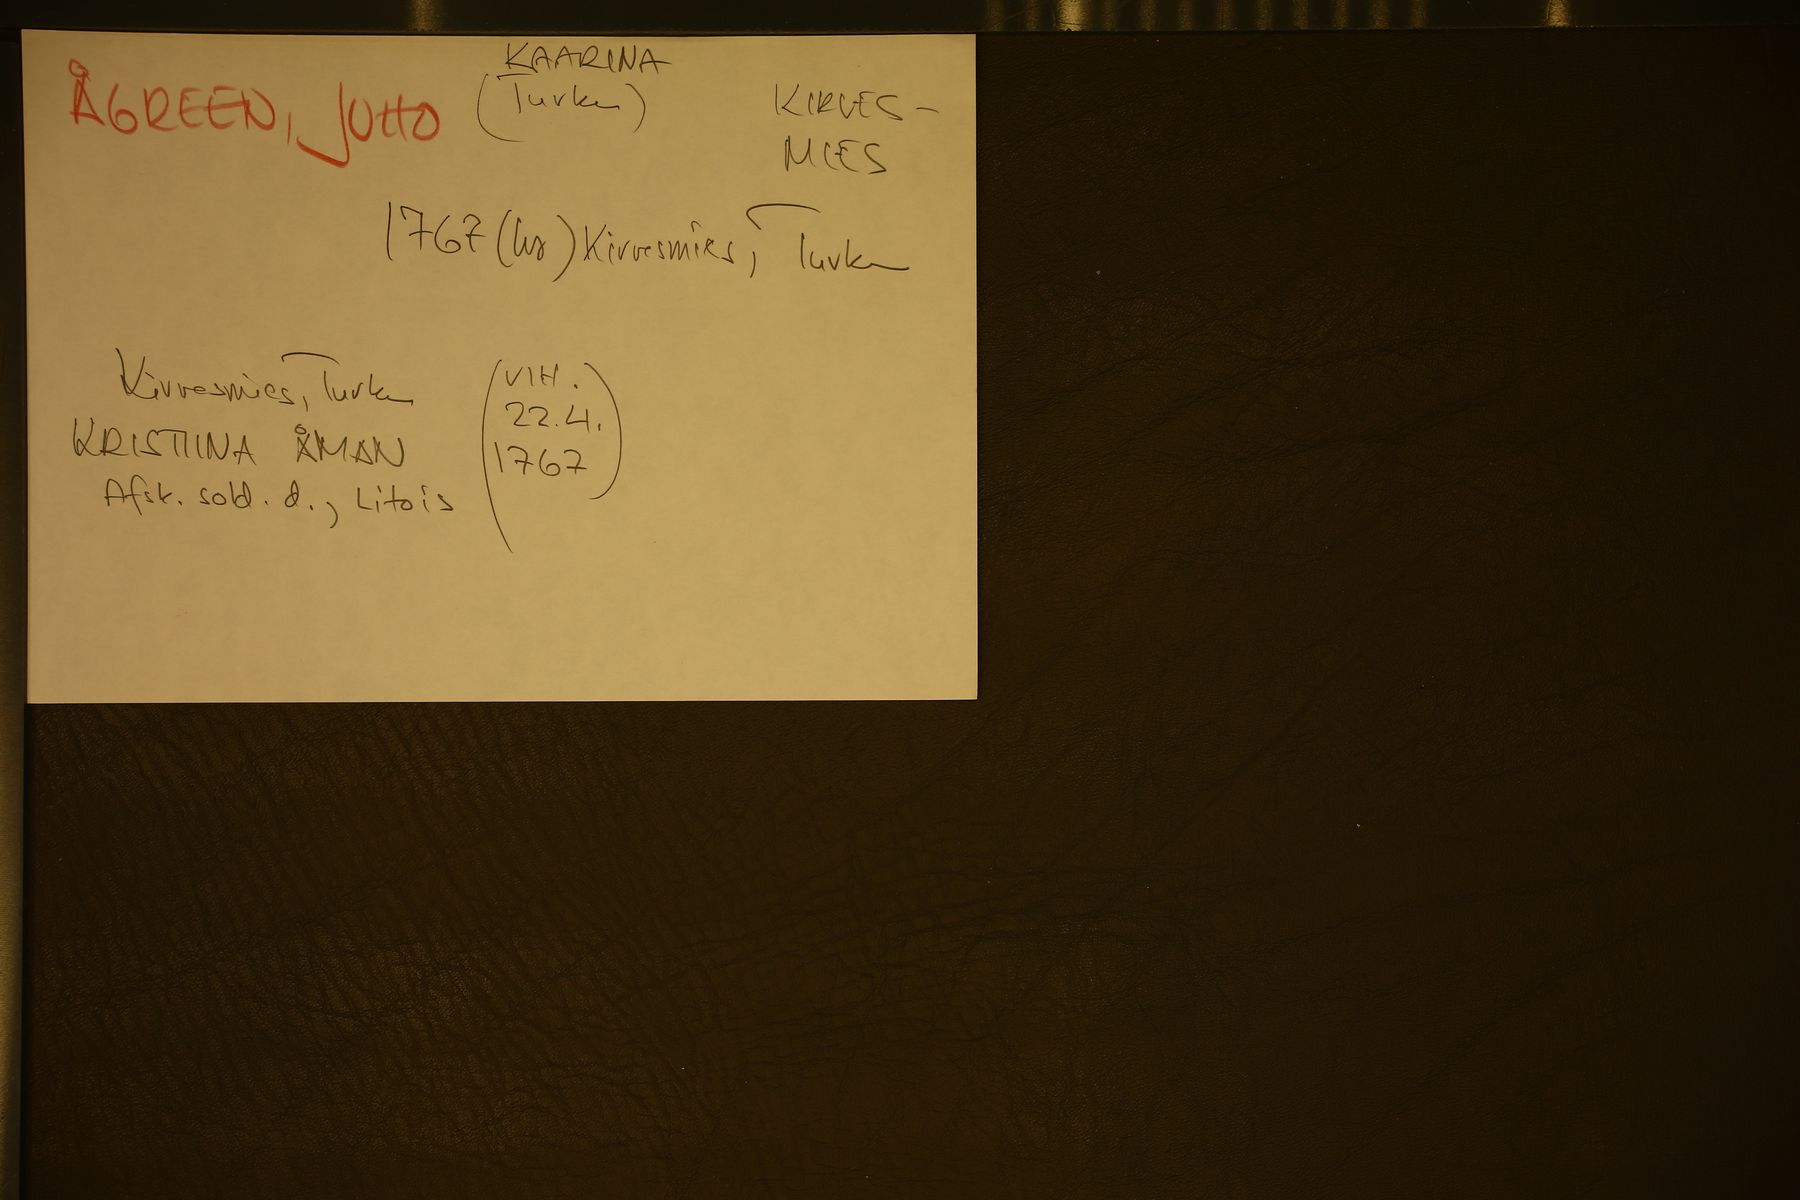 KAARINA
ÅGREEN, JUHO (Turku) KIRVES-
MIES
1767 (hs) Kirvesmies, Turku
Kirvesmies, Turku (VIH.
22.4.
KRISTIINA ÅMAN 1767)
Afsk. sold. d., Litois